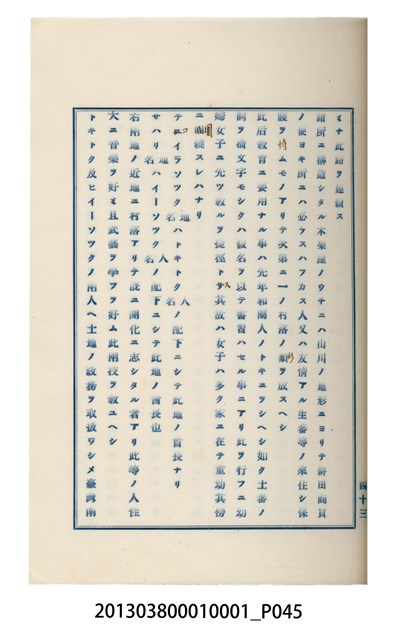 ミナ此路ヲ連續ス
諸所ニ傳道シタル木柴屋ノウチニハ山川ノ地形ニヨリテ新田商買
ノ便ヨキ所ニハ必ラスハフカス人又ハ友情アル生蕃等ノ來住シ保
護ヲ恃ムモノアリテ次第ニ一ノ村落ノ形ヲ成スヘシ
此后教育ニ要用ナル事ハ先年和蘭人ノトキエヲシヘシ如ク土蕃ノ
詞ヲ橫文字モシクハ假名ヲ以テ書習ハセル事ニアリ此ヲ行フニ幼
婦女子ニ先ツ敎ルヲ捷徑トス其故ハ女子ハ多ク家ニ在テ童幼其傍
ニ圍繞スレハナリ
テエイラソツク地名ハトキトク人名ノ配下ニシテ此地ノ酋長ナリ
サハリ地名ハイーソツク人名ノ配下ニシテ此地ノ酋長也
右兩地ノ近邊ニ村落アリテ既ニ開化ニ志シタル者アリ此等ノ人性
大ニ音樂ヲ好ミ且武藝ヲ學フヲ好ム此兩技ヲ敎ユヘシ
トキトク及ヒイーソツクノ兩人ヘ士地ノ政務ヲ取扱ワシメ臺灣南
四十三
201303800010001_P045